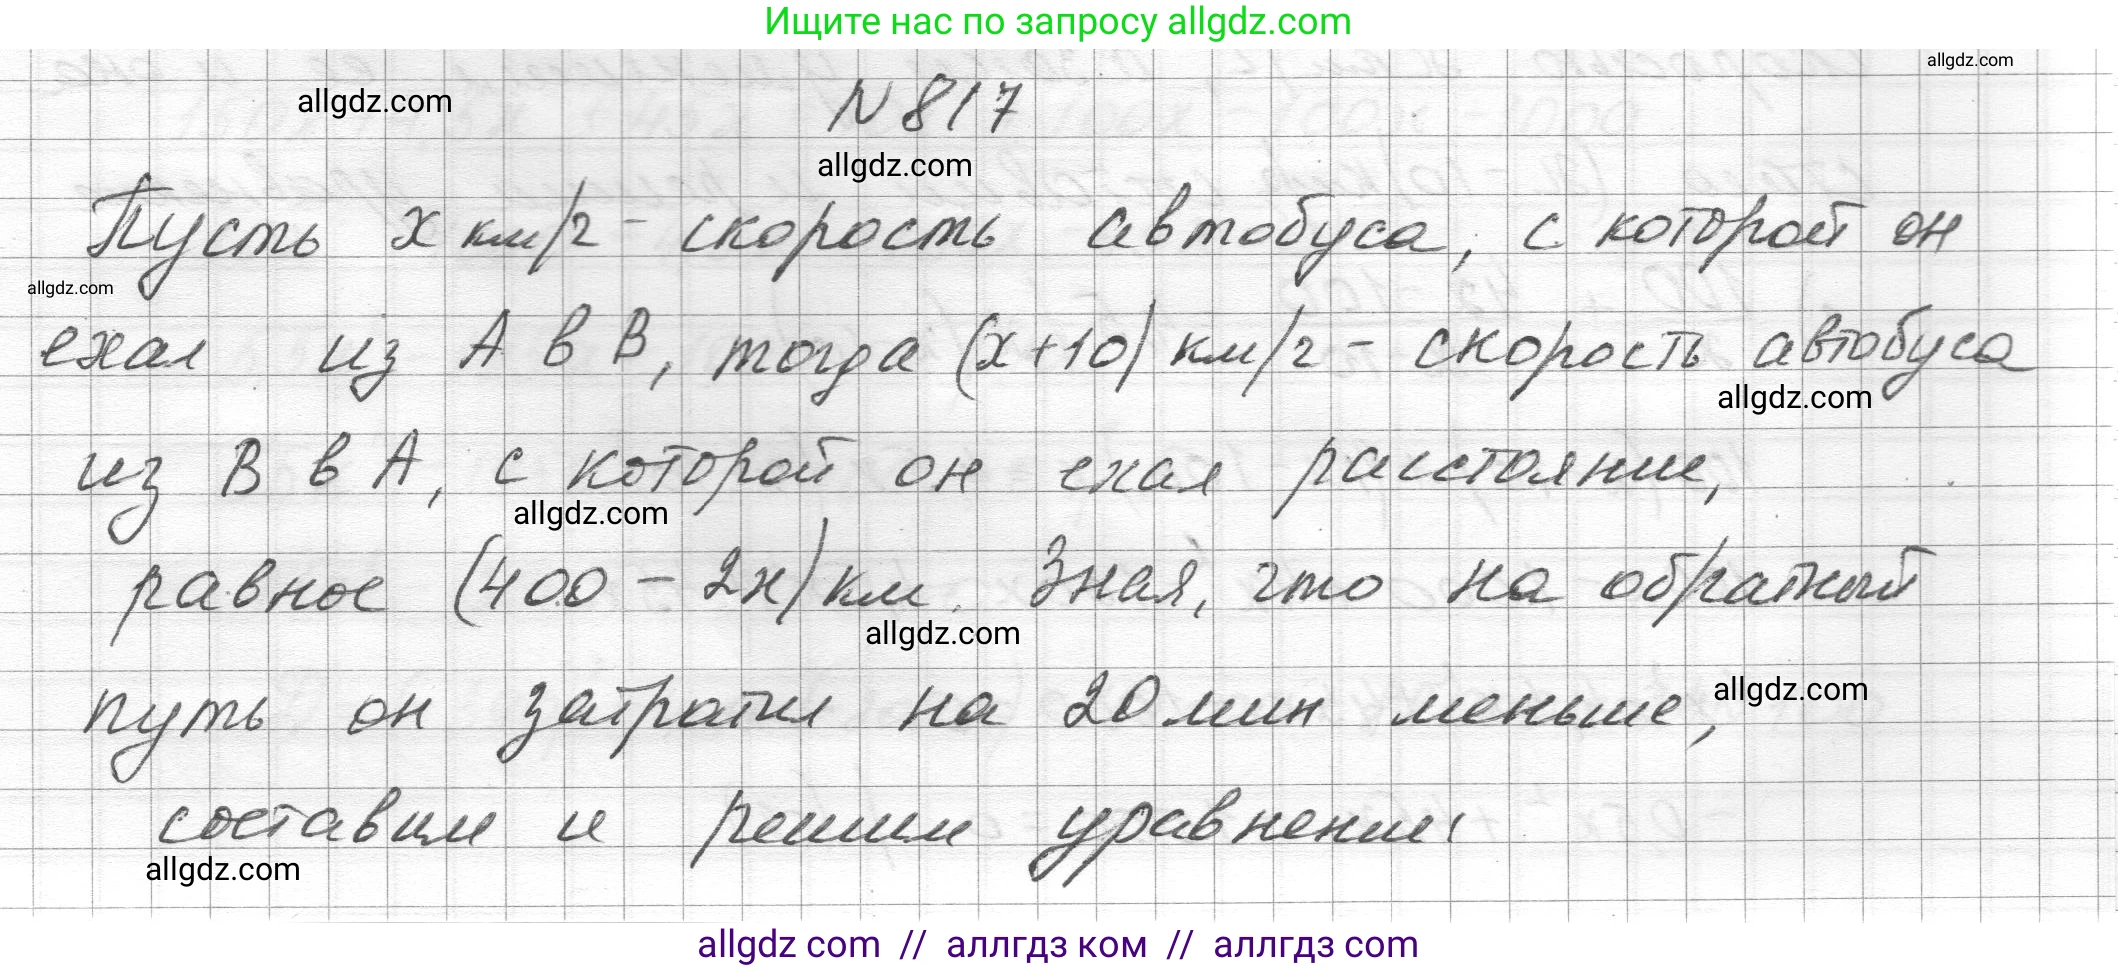 Ищите нас по запросу allgdz.com
allgdz.com
allgdz.com
N 817
allgdz.com
Пусть x км/ч - скорость автобуса, с которой он
allgdz.com
ехал из А в В, тогда (x+10) км/ч - скорость автобуса
allgdz.com
из В в А, с которой он ехал расстояние,
allgdz.com
равное (400 - 2x) км. Зная, что на обратный
allgdz.com
путь он затратил на 20 мин меньше,
allgdz.com
составим и решим уравнение:
allgdz.com
allgdz com // аллгдз ком // аллгдз com